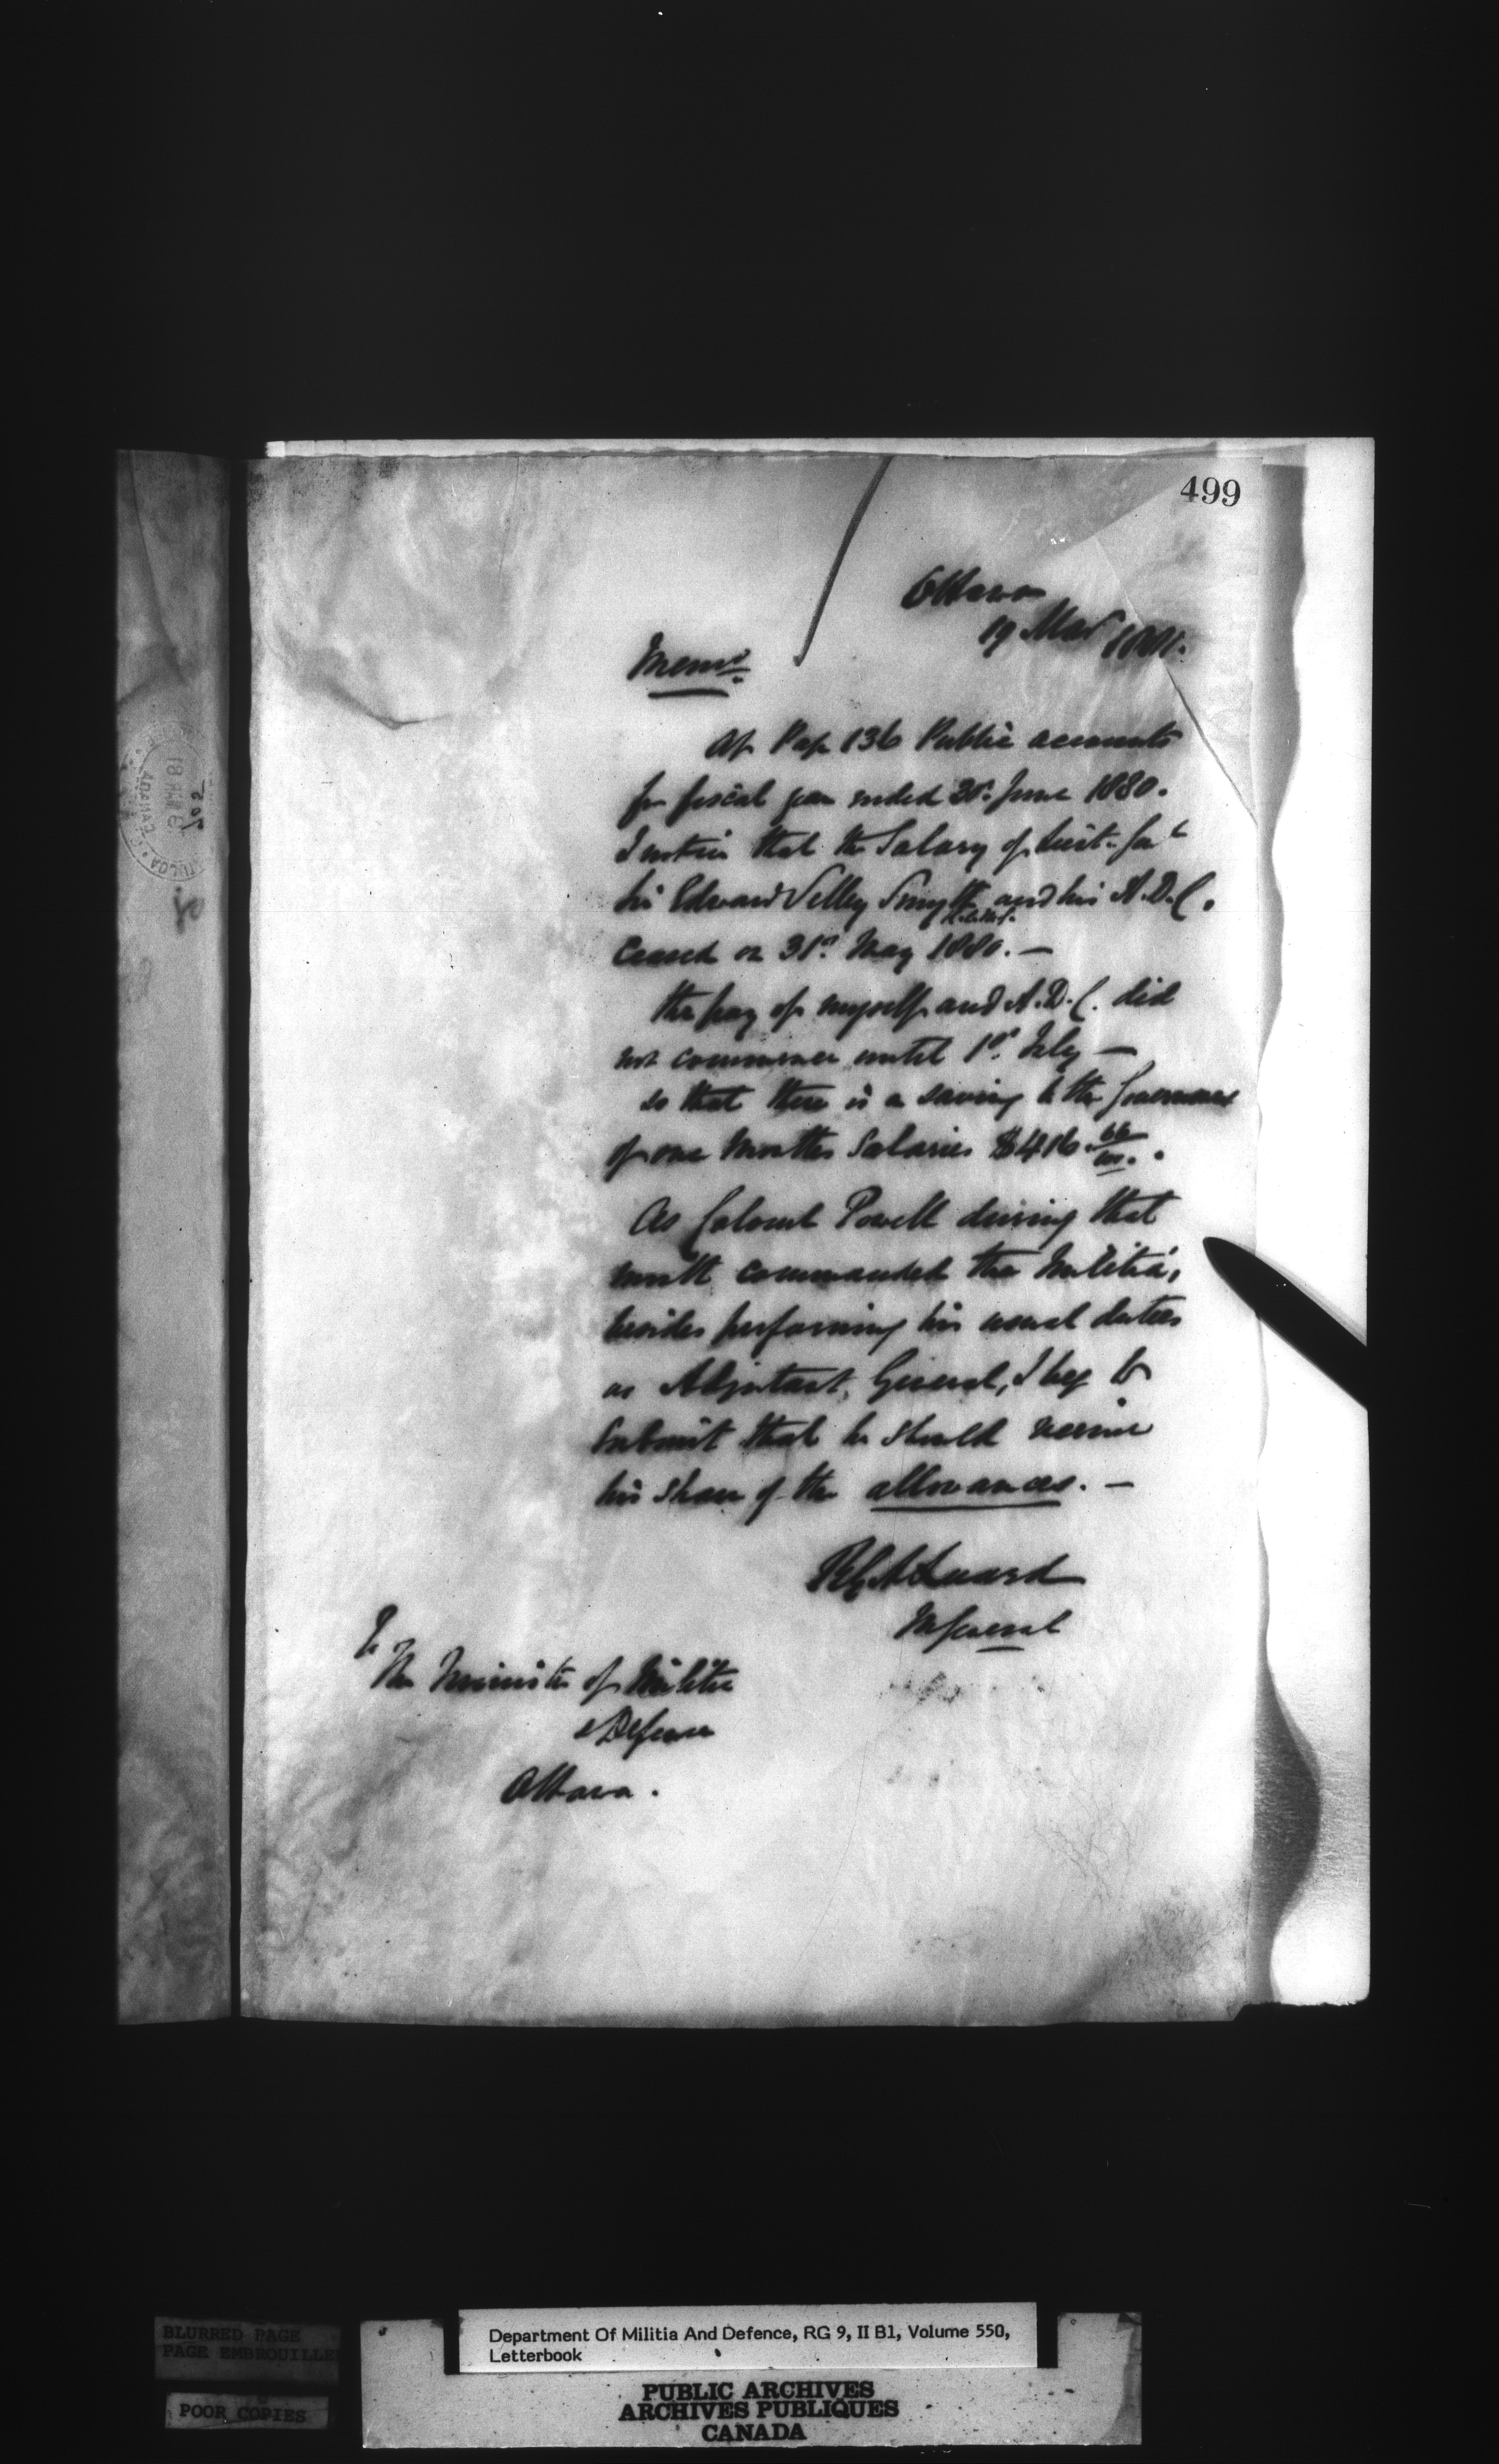 499
Ottawa
19 Mar 1881.
Memo.
At Page 136 Public accounts
for fiscal year ended 30th June 1880.
I notice that the Salary of Lieut. Genl
Sir Edward Selby Smyth and his A.D.C.
K.C.M.G.
Ceased on 31st May 1880. —
The pay of myself and A.D.C. did
not commence until 1st July —
so that there is a saving to the Government
of one Months Salaries $416 66/100.
As Colonel Powell during that
month commanded the Militia,
besides performing his usual duties
as Adjutant General, I beg to
Submit that he should receive
his share of the allowances. —
R G A Luard
M General
To
The Minister of Militia
& Defence
Ottawa.
BLURRED PAGE
PAGE EMBROUILLE
POOR COPIES
Department Of Militia And Defence, RG 9, II B1, Volume 550,
Letterbook
PUBLIC ARCHIVES
ARCHIVES PUBLIQUES
CANADA